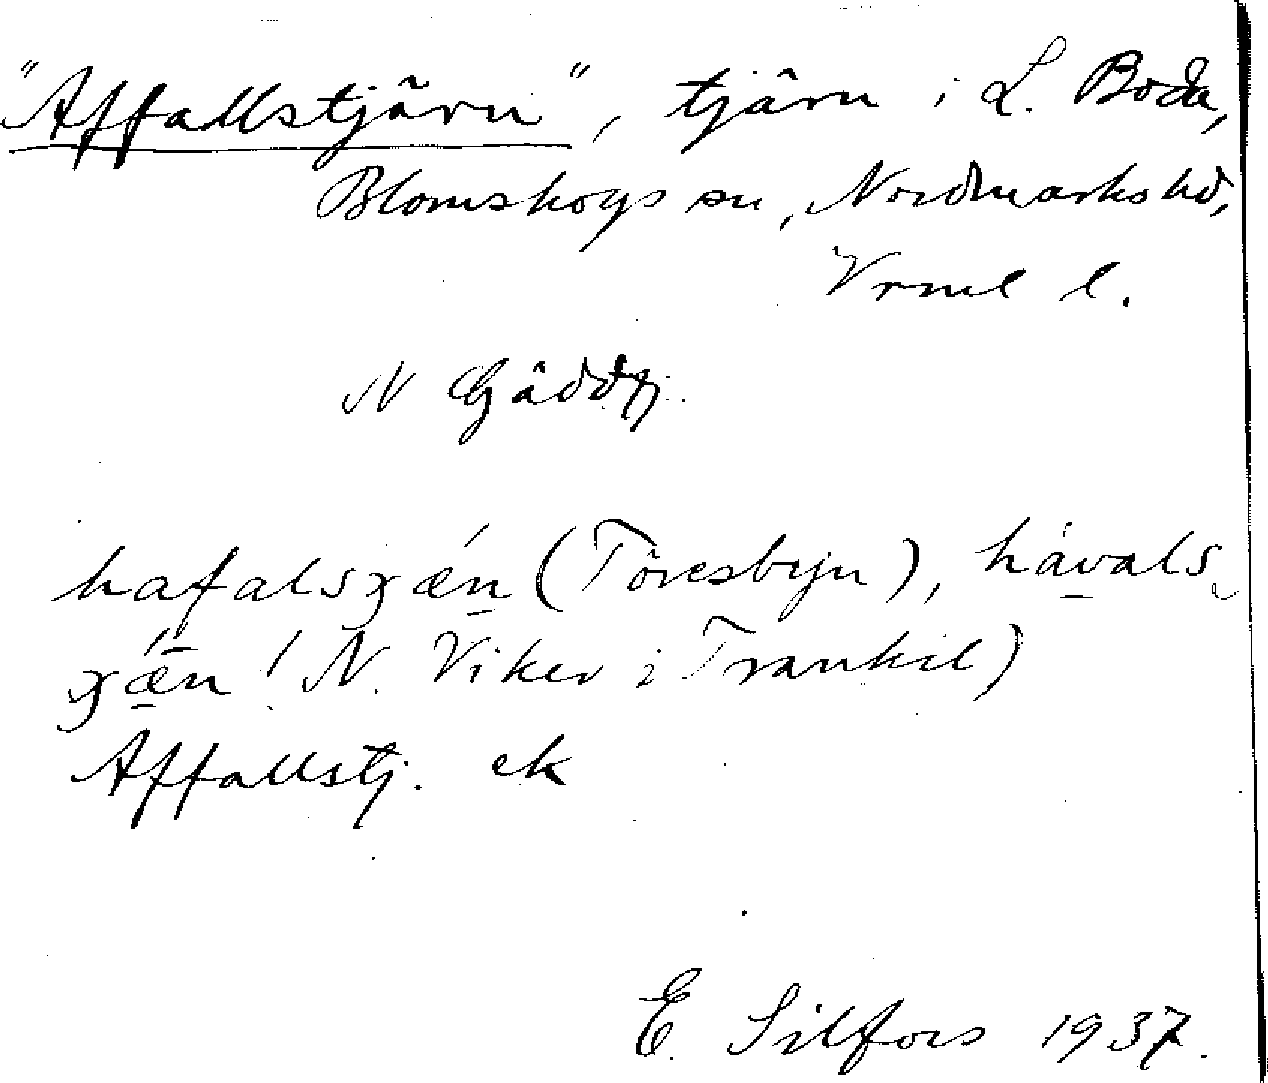 "Affallstjärn", tjärn i L. Boda,
Blomskogs sn, Nordmarks hd,
Vrml l.
N Gäddtj.
hafalsɤǽn (Töresbyn), hávals-
ɤǽn (N. Viker i Trankil)
Affallstj. ek
E. Silfors 1937.